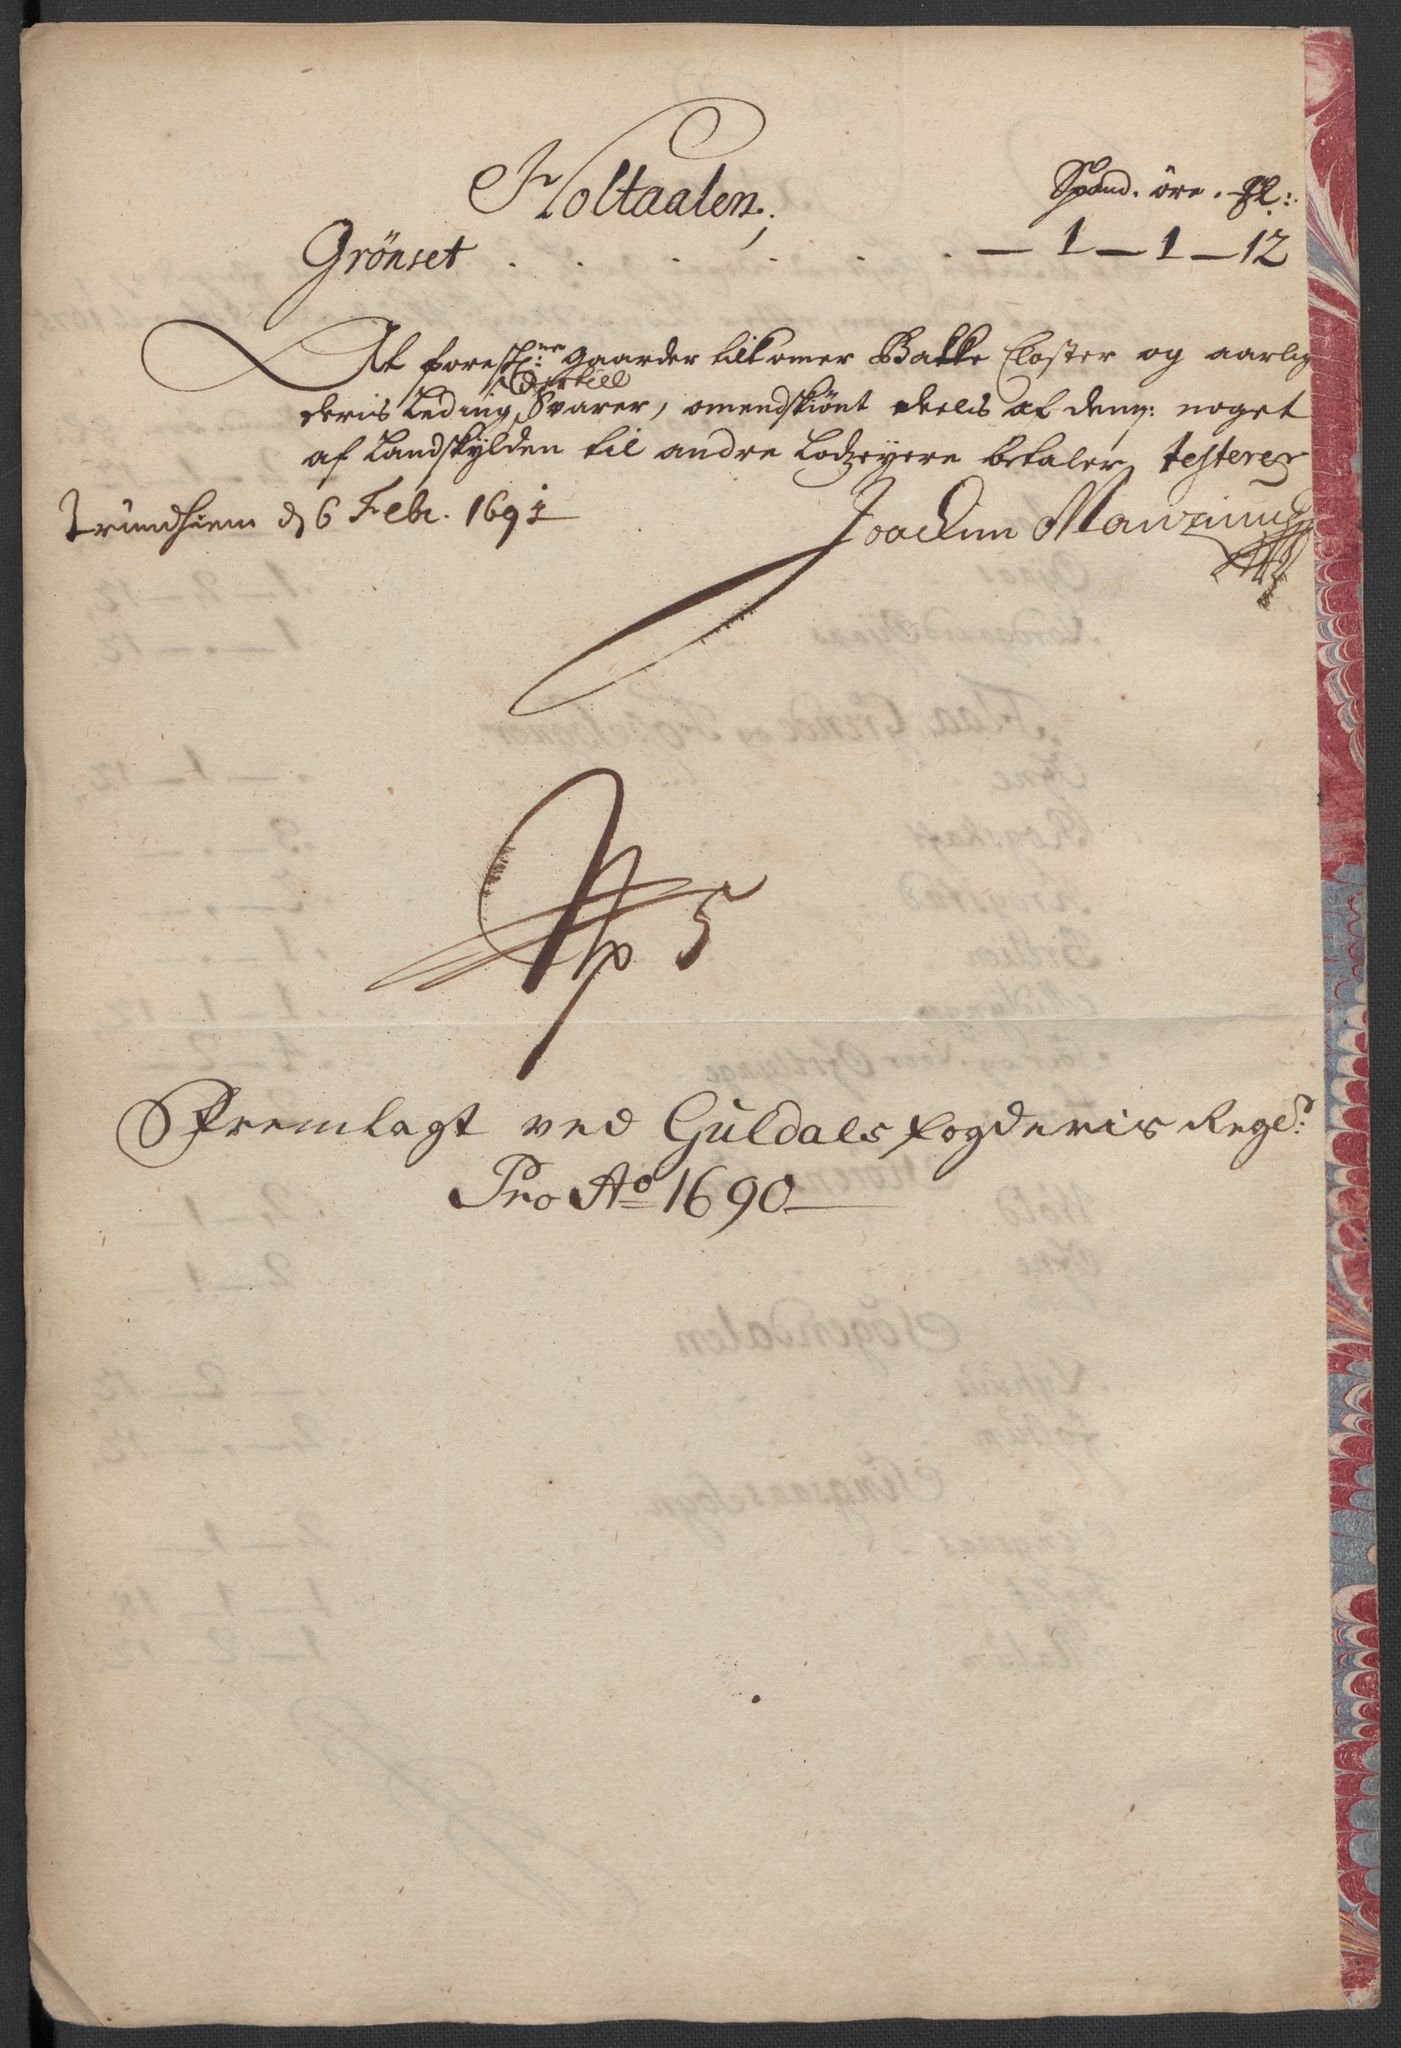 Holtaalen;
Spand. öre. Ml:
Grönset . . . . . . — 1 — 1 — 12
At foreskr:ne gaarder tilkomer Bakke Closter og aarlig
dertill
deris Leding Svarer, omendskiönt deels af dem: noget
af Landskylden til andre Lodzeyere betaler, testerer
Trundhiem d 6 Febr. 1691
Joachim
5
Fremlagt ved Guldals fogderis Regs:
Pro Ao 1690